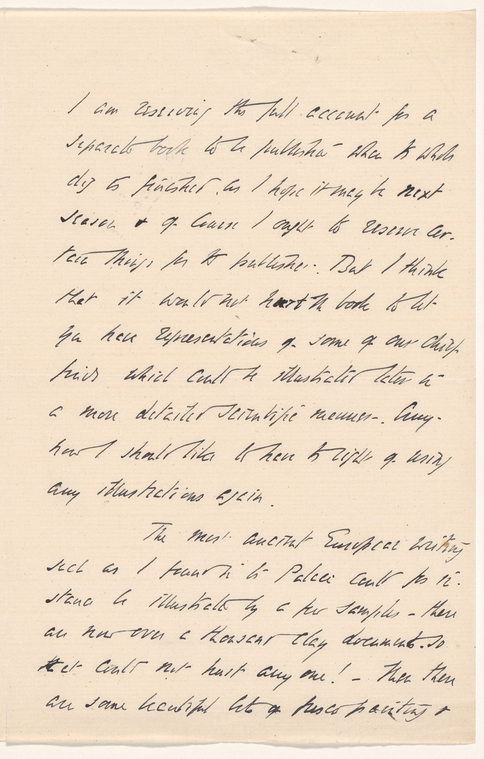 I am reserving the full account for a
separate book to be published when the whole
dig is finished, as I hope it may be next
season & of course I ought to reserve cer-
tain things for the publisher. But I think
that it would not hurt the book to let
you have representations of some of our chief
finds which could be illustrated later in
a more detailed scientific manner. Any-
how I should like to have the right of using
any illustrations again.
The most ancient European writing
such as I found in the Palace could for in-
stance be illustrated by a few samples – there
are now over a thousand clay documents so
that could not hurt any one! – Then there
are some beautiful bits of fresco painting &